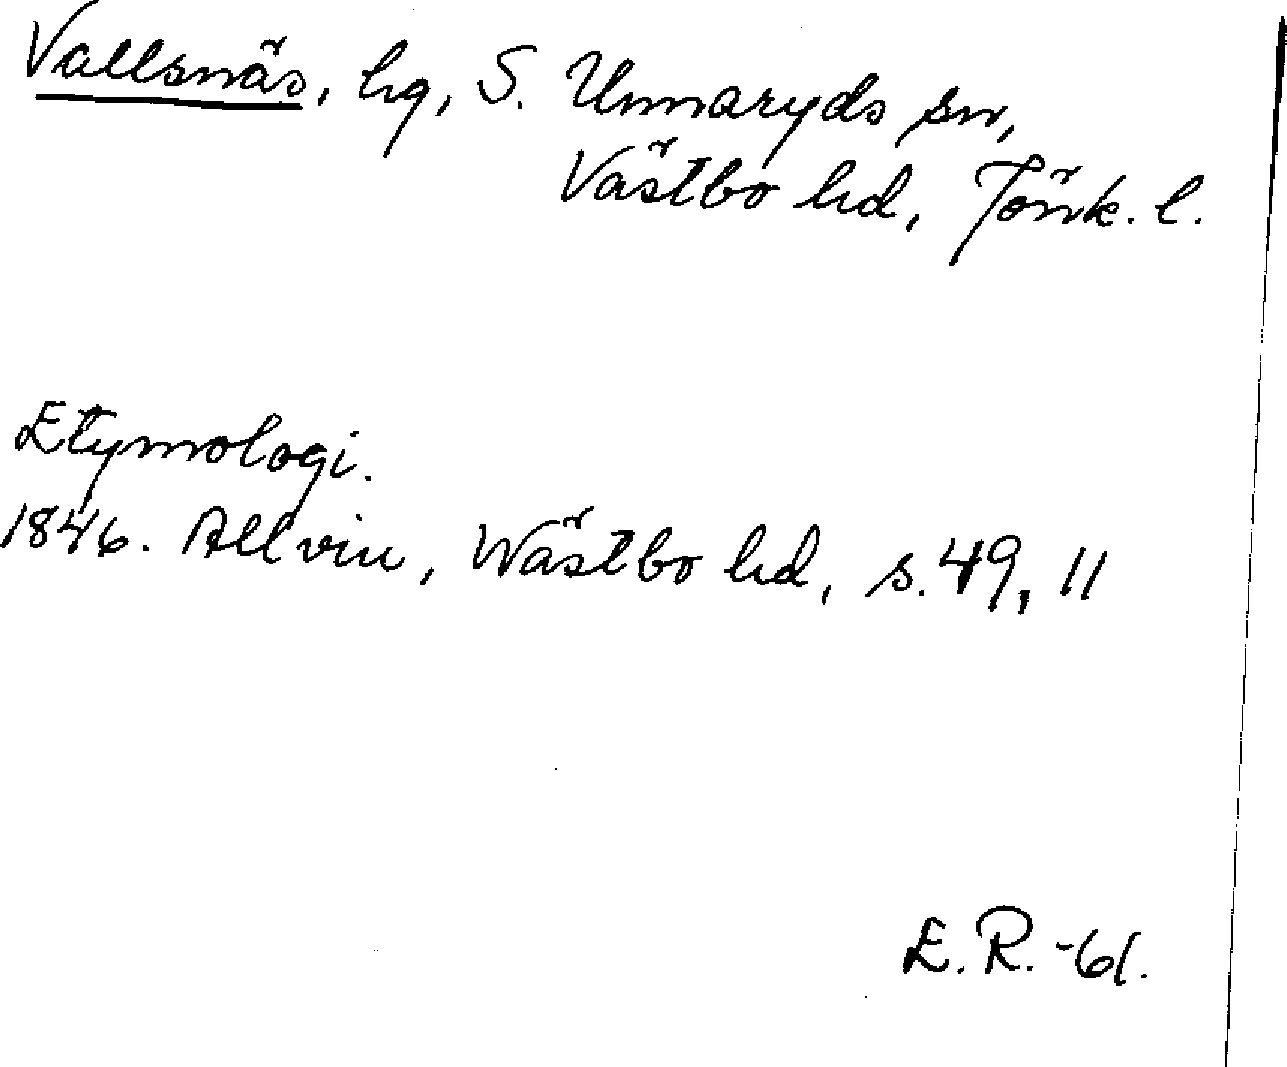 Vallsnäs, hg, S. Unnaryds sn,
Västbo hd, Jönk. l.
Etymologi.
1846. Allvin, Wästbo hd, s. 49, 11
E. R. -61.